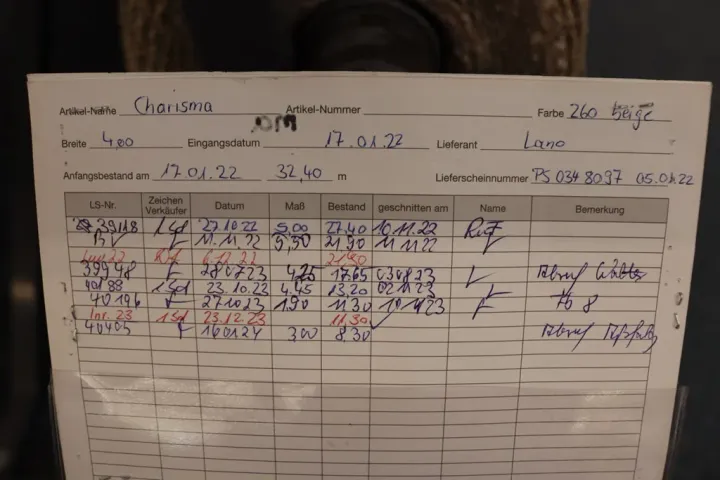 Artikel-Name Charisma Artikel-Nummer Farbe 260 beige
Breite 4,00 Eingangsdatum 17.01.22 Lieferant Lano
Anfangsbestand am 17.01.22 32,40 m Lieferscheinnummer PS 034 8097 05.01.22
LS-Nr. Zeichen Verkäufer Datum Maß Bestand geschnitten am Name Bemerkung
39118 27.10.22 5,00 27,40 10.11.22
11.11.22 5,50 21,90 11.11.22
Inv 22 6.12.22 21,90
39948 28.07.23 4,25 17,65 03.08.23 Abruf
40188 23.10.22 4,45 13,20 02.11.23
40196 27.10.23 1,90 11,30 Ab 8
Inv. 23 23.12.23 11,30
40405 16.01.24 3,00 8,30 Abruf